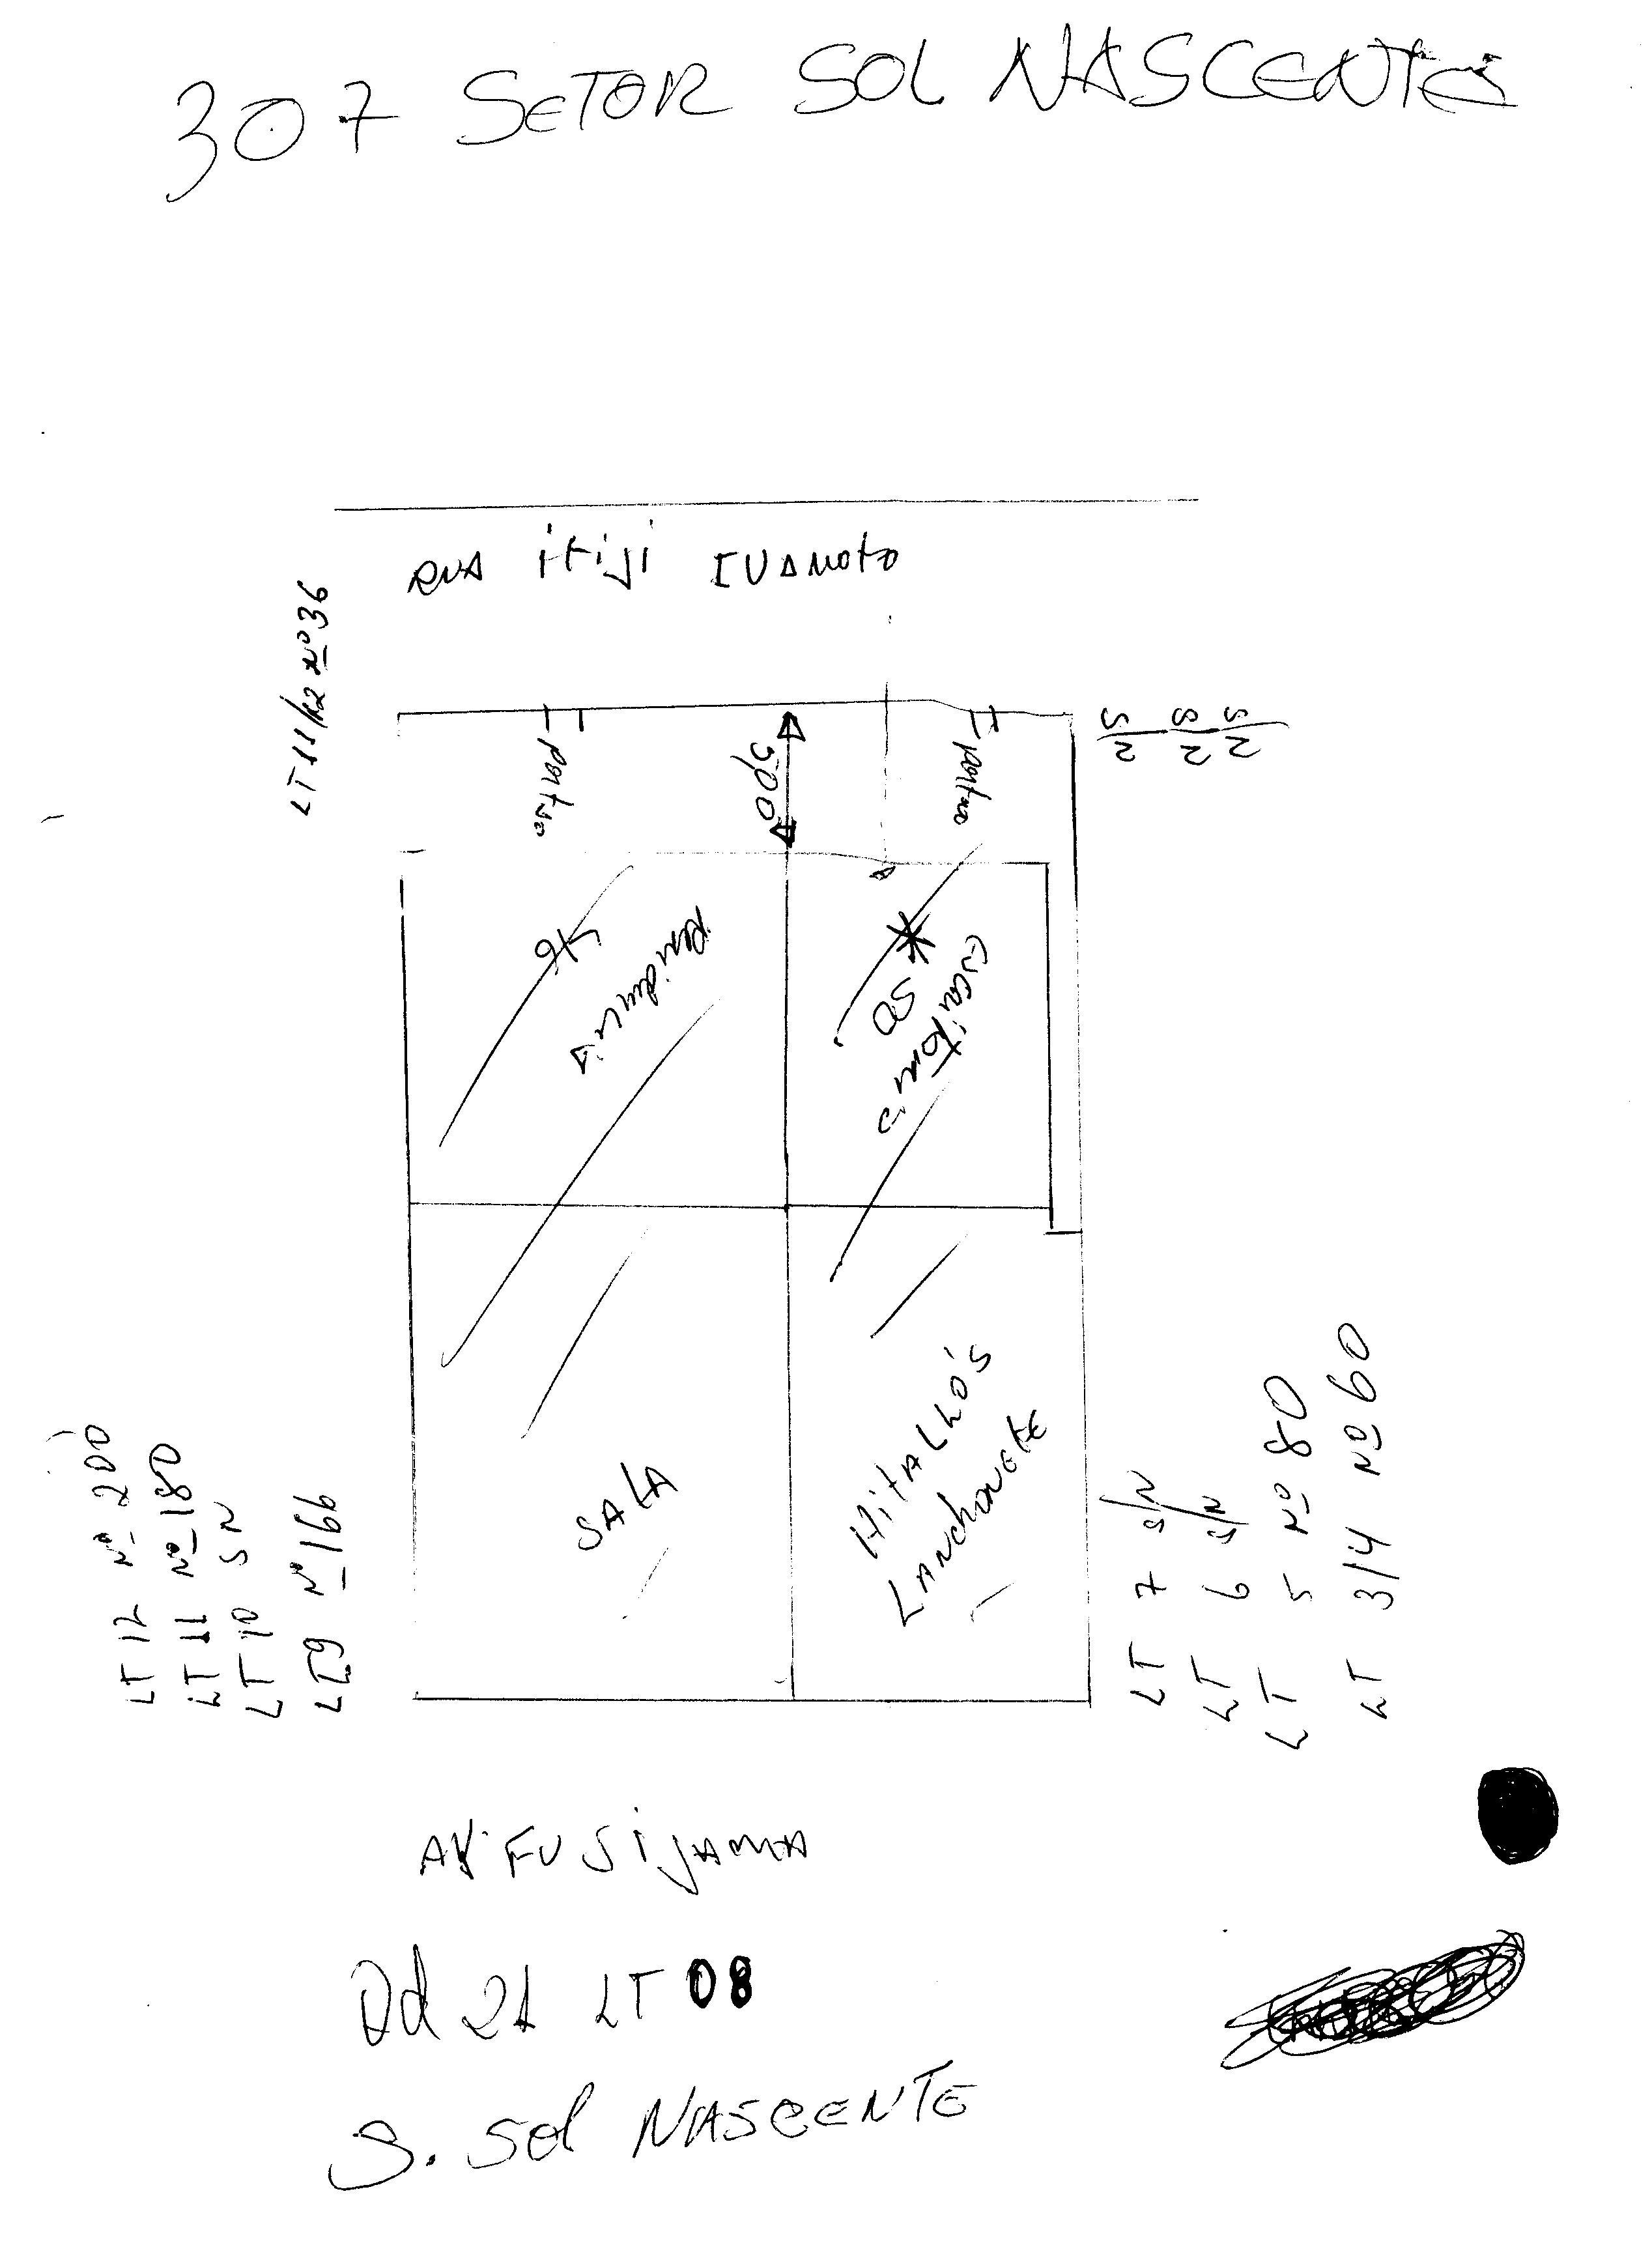 307 SETOR SOL NASCENTE
RUA itiji IUAMOTO
LT 11/12 Nº 36
S/N
S/N
S/N
portao
5,00
portao
Residencia
50
escritorio
SALA
HitALLO'S
LANCHONETE
LT 12 Nº 200
LT 11 Nº 180
LT 10 SN
LT 9 Nº 166
LT 7 S/N
LT 6 S/N
LT 5 Nº 80
LT 3/4 Nº 60
AV FUSIJAMA
Qd 21 LT 08
S. Sol NASCENTE